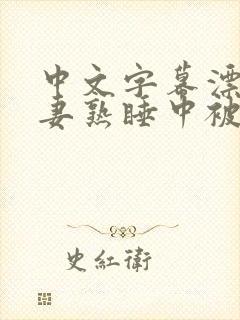 中文字幕漂
妻熟睡中被
史紅衛